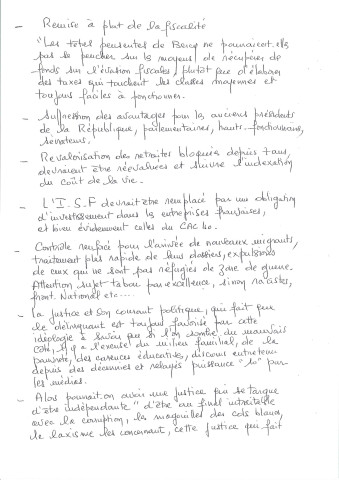 - Remise à plat de la fiscalité
"Les têtes pensantes de Bercy ne pourraient-elles
pas se pencher sur les moyens de récupérer de
fonds sur l'évasion fiscale, plutôt que d'élaborer
des taxes qui touchent les classes moyennes et
toujours faciles à ponctionner.
- Supression des avantages pour les anciens présidents
de la République, parlementaires, hauts-fonctionnaires,
sénateurs.
- Revalorisation des retraites bloquées depuis 7 ans,
devraient être réévaluées et suivre l'indexation
du coût de la vie.
- L'I.S.F devrait être remplacé par une obligation
d'investissement dans les entreprises françaises,
et bien évidemment celles du CAC 40.
- Contrôle renforcé pour l'arrivée de nouveaux migrants,
traitement plus rapide de leurs dossiers, expulsions
de ceux qui ne sont pas réfugiés de zone de guerre.
Attention sujet tabou par excellence, sinon racistes,
front National etc....
- La justice et son courant politique, qui fait que
le délinquant est toujours favorisé par cette
idéologie à savoir que si l'on sombre du mauvais
côté, il y a l'excuse du milieu familial, de la
pauvreté, des carences éducatives, discours entretenu
depuis des décennies et relayés puissance "10" par
les médias.
- Alors pourrait-on avoir une justice qui se targue
d'être indépendante" d'être au final intraitable
avec la corruption, les magouilles des cols blancs,
le laxisme les concernant, cette justice qui fait